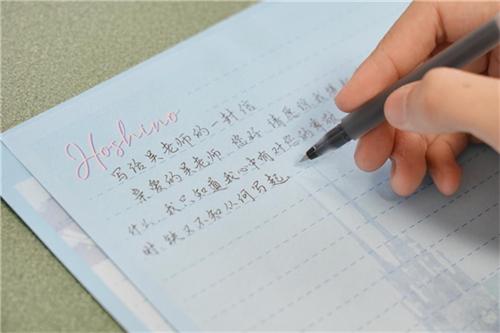 Hoshino
写给吴老师的一封信
亲爱的吴老师 您好 请原谅我
什么,我只知道我心中有对您的
时,缺又不知从何写起。